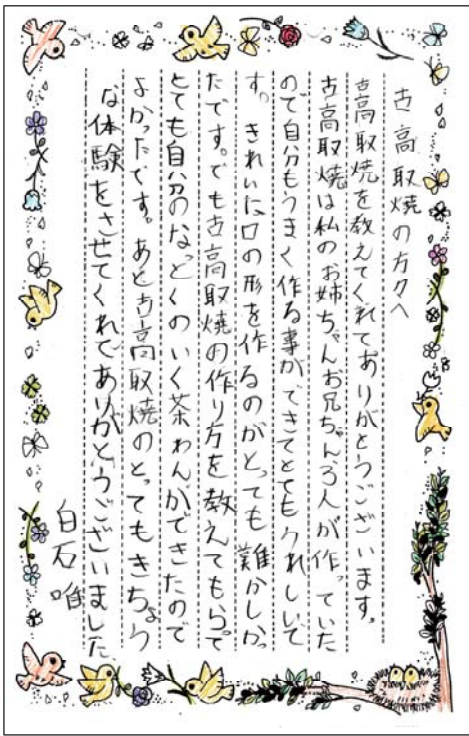 古高取焼の方々へ
古高取焼を教えてくれてありがとうございます。
古高取焼は私のお姉ちゃんお兄ちゃん3人が作っていた
ので自分もうまく作る事ができてとてもうれしいで
す。きれいに口の形を作るのがとっても難かしかっ
たです。でも古高取焼の作り方を教えてもらって
とても自分のなっとくのいく茶わんができたので
よかったです。あと古高取焼のとってもきちょう
な体験をさせてくれてありがとうございました
白石唯